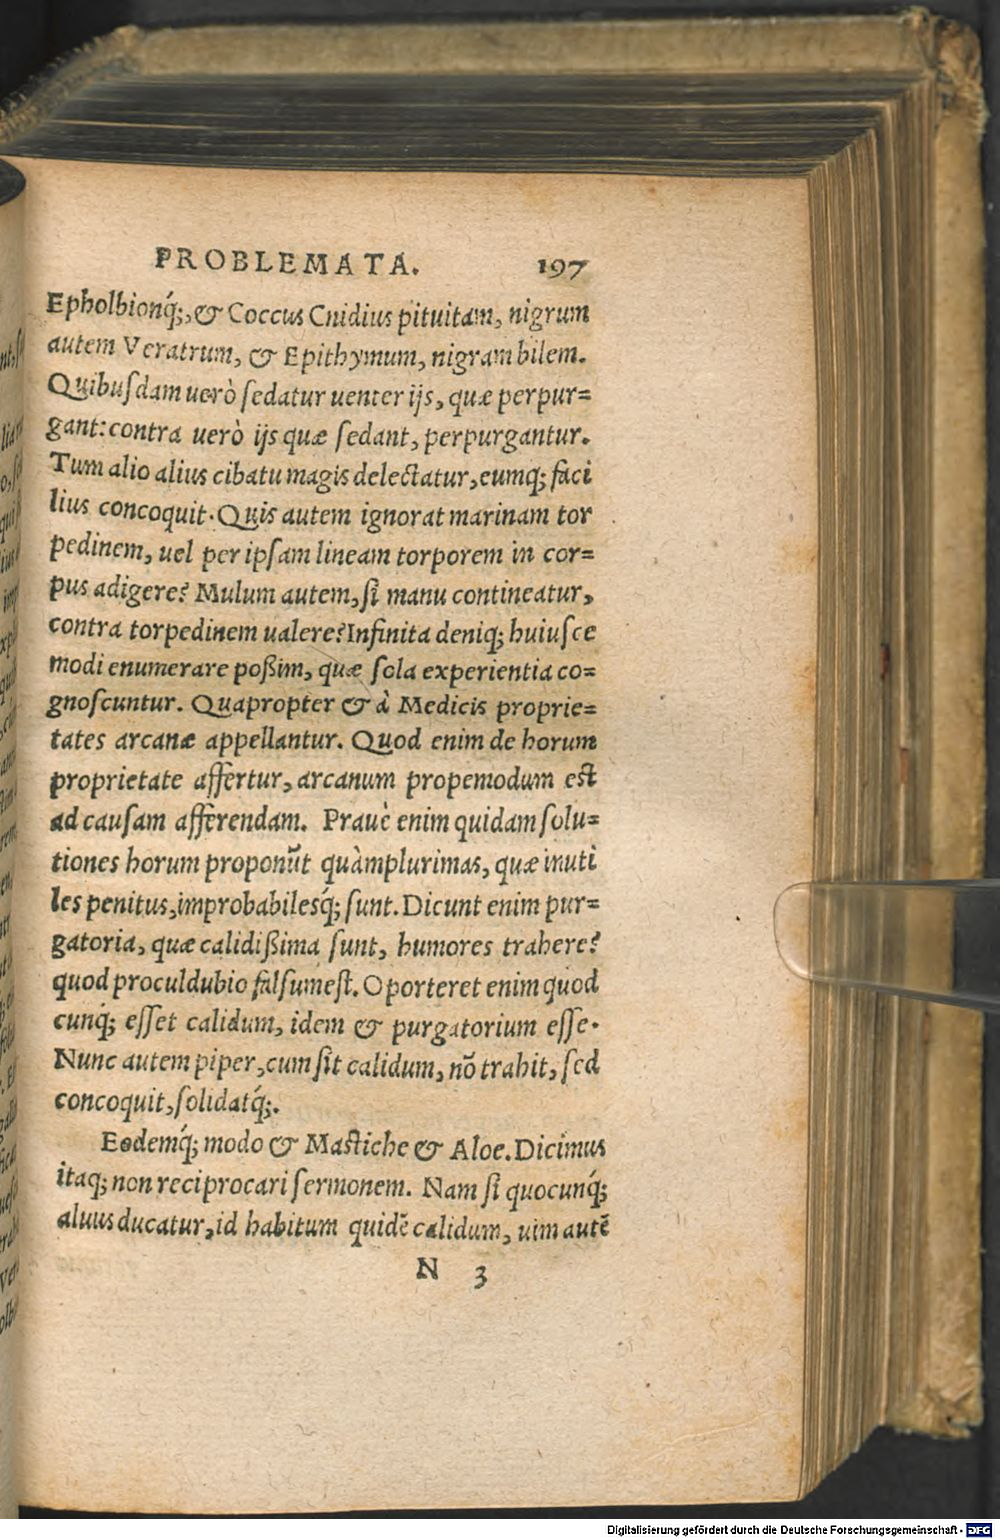 PROBLEMATA. 197
Epholbionq́;, & Coccus Cnidius pituitam, nigrum
autem Veratrum, & Epithymum, nigram bilem.
Quibuſdam uerò ſedatur uenter ijs, quæ perpur=
gant: contra uerò ijs quæ ſedant, perpurgantur.
Tum alio alius cibatu magis delectatur, eumq; faci
lius concoquit. Quis autem ignorat marinam tor
pedinem, uel per ipſam lineam torporem in cor=
pus adigere? Mulum autem, ſi manu contineatur,
contra torpedinem ualere? Infinita deniq; huiuſce
modi enumerare poßim, quæ ſola experientia co=
gnoſcuntur. Quapropter & à Medicis proprie=
tates arcanæ appellantur. Quod enim de horum
proprietate affertur, arcanum propemodum est
ad cauſam afferendam. Prauè enim quidam ſolu=
tiones horum proponūt quàmplurimas, quæ inuti
les penitus, improbabilesq́; ſunt. Dicunt enim pur=
gatoria, quæ calidißima ſunt, humores trahere?
quod proculdubio falſumeſt. Oporteret enim quod
cunq; eſſet calidum, idem & purgatorium eſſe.
Nunc autem piper, cum ſit calidum, nō trahit, ſed
concoquit, ſolidatq́;.
Eodemq́; modo & Mastiche & Aloe. Dicimus
itaq; non reciprocari ſermonem. Nam ſi quocunq́;
aluus ducatur, id habitum quidē calidum, uim autē
N 3
Digitalisierung gefördert durch die Deutsche Forschungsgemeinschaft - DFG